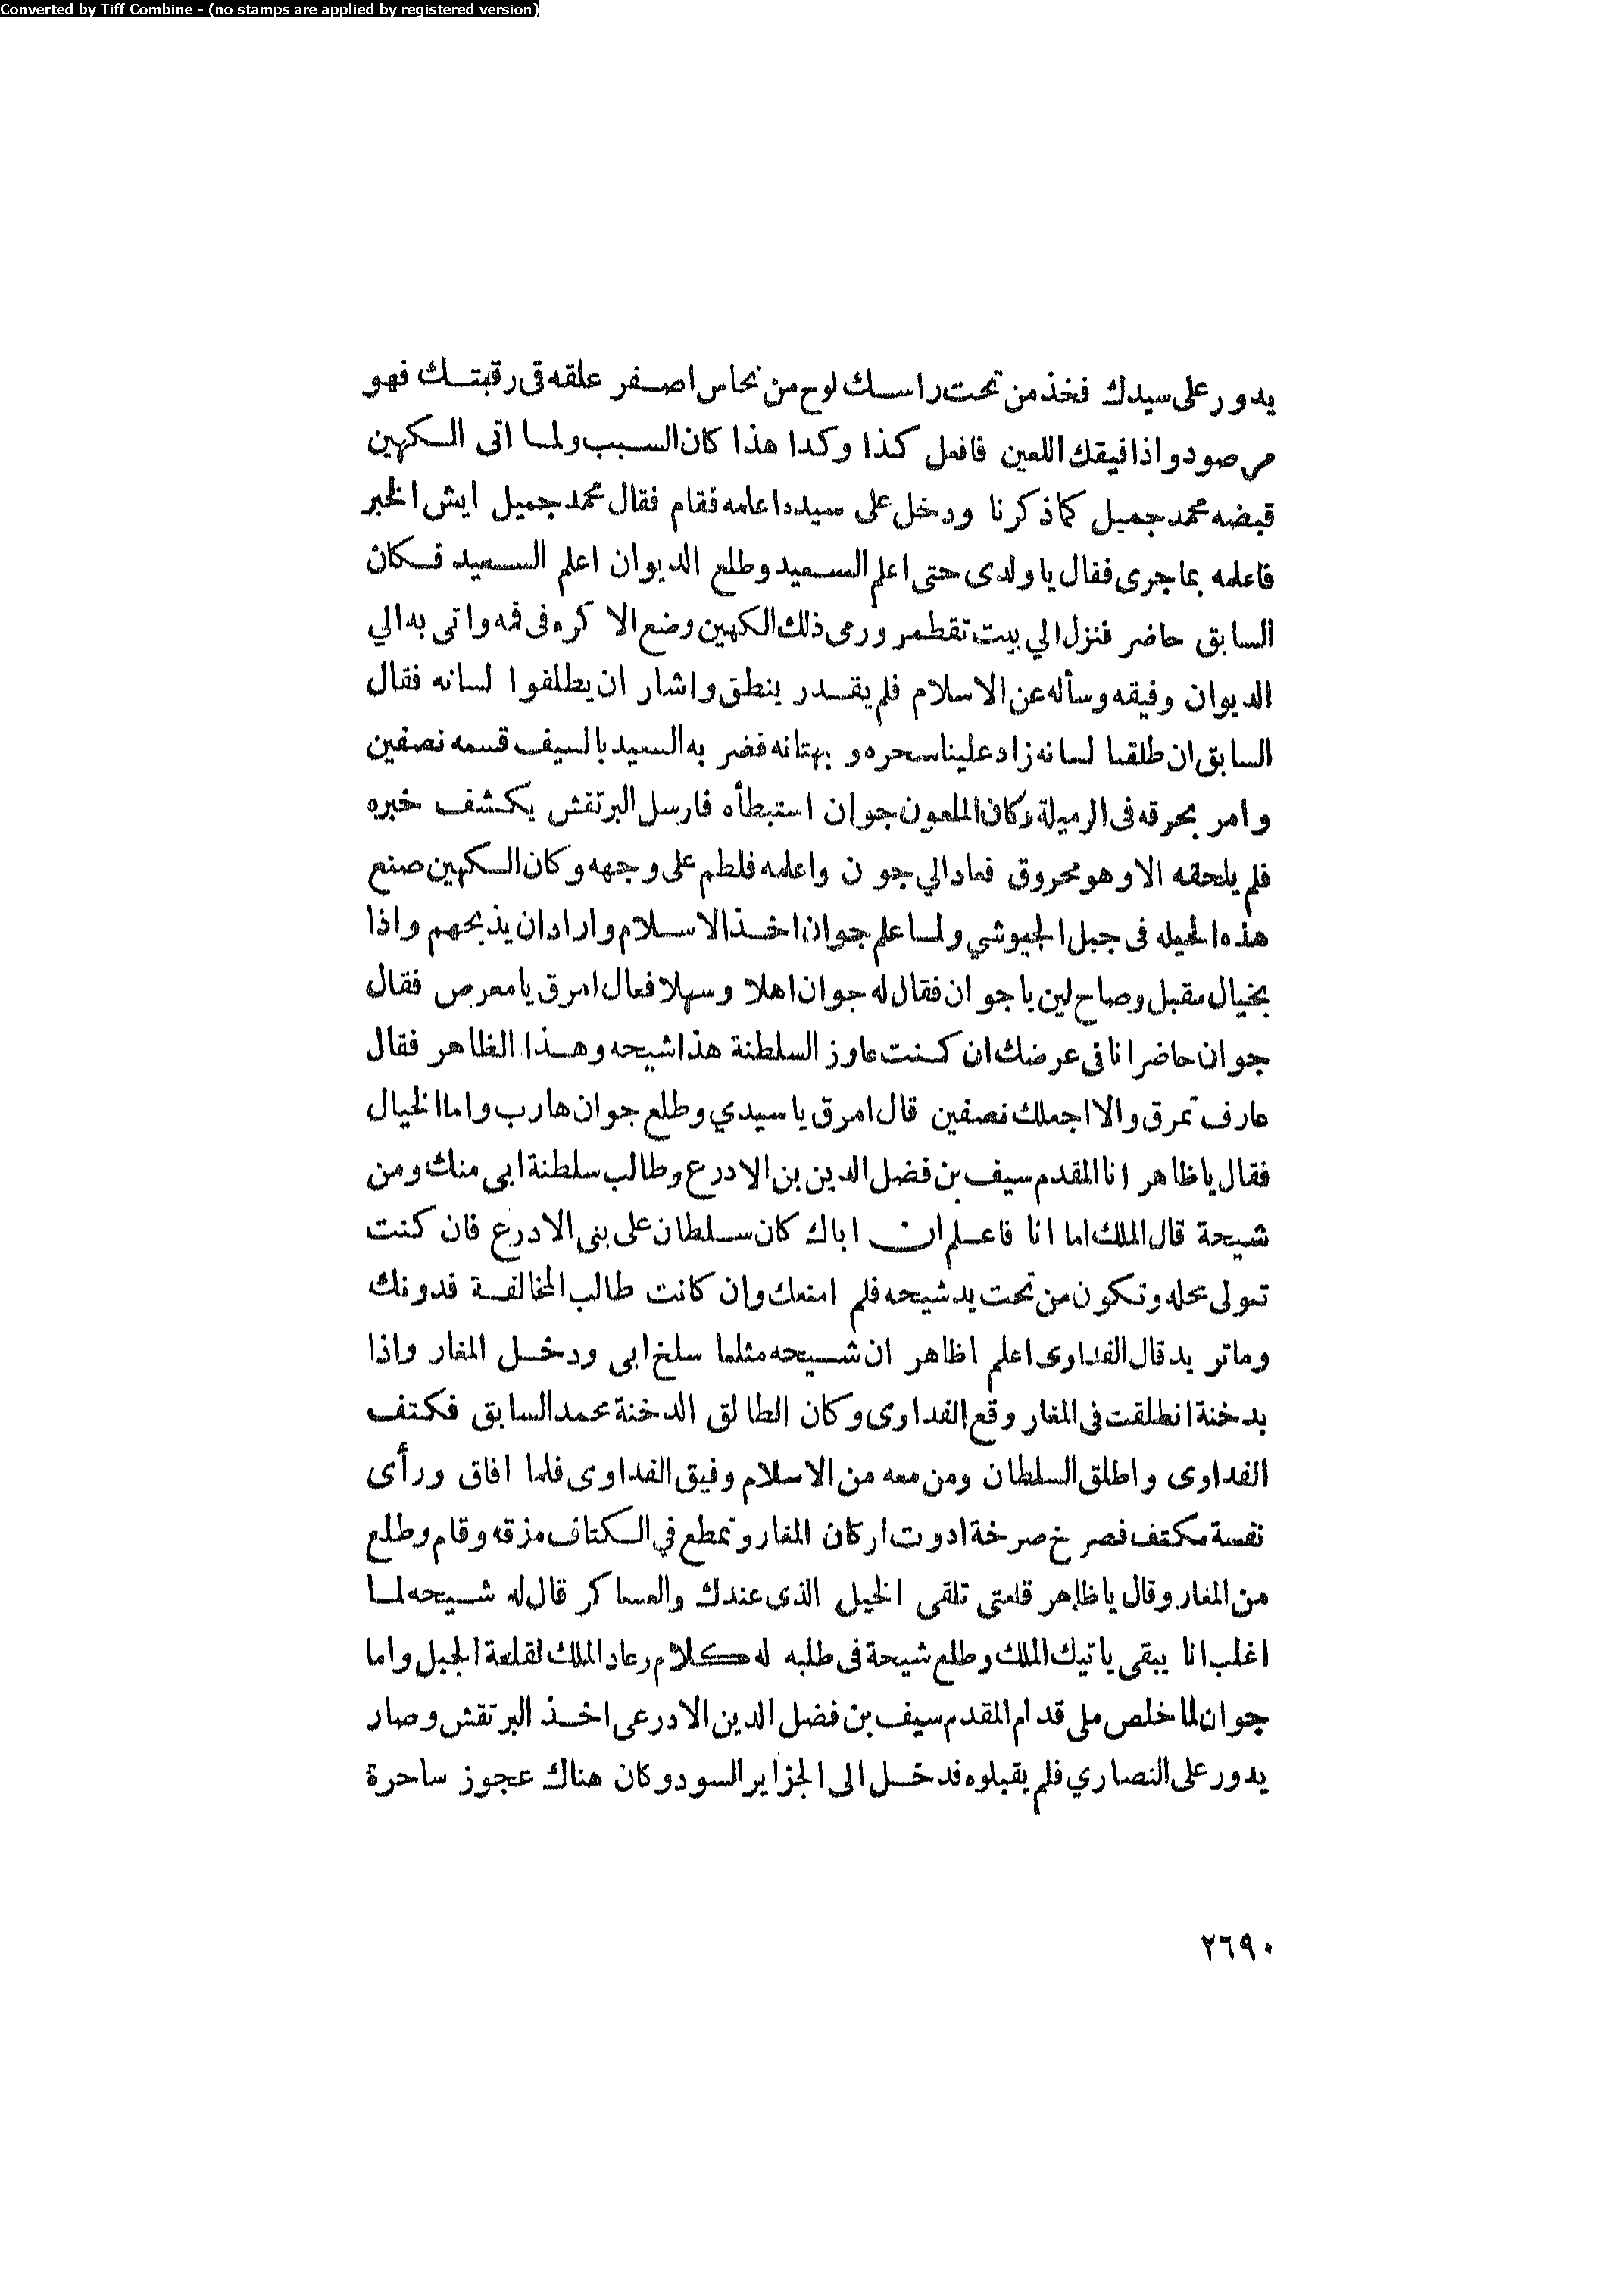 Converted by Tiff Combine - (no stamps are applied by registered version)
يدور على سيدك فخذ من تحت راسك لوح من نحاس اصفر علقه فى رقبتك فهو
مرصود واذا فيقك اللعين فافعل كذا وكدا هذا كان السبب ولما اتى الكهين
قبضه محمد جميل كما ذكرنا ودخل على سيده اعلمه فقام فقال محمد جميل ايش الخبر
فاعلمه بما جرى فقال يا ولدى حتى اعلم السعيد وطلع الديوان اعلم السعيد فكان
السابق حاضر فنزل الي بيت تقطمر ورمى ذلك الكهين وضع الاكره فى فمه واتى به الي
الديوان وفيقه وسأله عن الاسلام فلم يقدر ينطق واشار ان يطلقوا لسانه فقال
السابق ان طلقنا لسانه زاد علينا سحره و بهتانه فضر به السعيد بالسيف قسمه نصفين
وامر بحرقه فى الرميلة وكان الملعون جوان استبطأه فارسل البرتقش يكشف خبره
فلم يلحقه الا وهو محروق فعاد الي جو ن واعلمه فلطم على وجهه وكان الكهين صنع
هذه الحيله فى جبل الجيوشي ولما علم جوان اخذ الاسلام واراد ان يذبحهم واذا
بخيال مقبل وصاح لين يا جوان فقال له جوان اهلا وسهلا فعال امرق يا معرص فقال
جوان حاضر انا فى عرضك ان كنت عاوز السلطنة هذا شيحه وهذا الظاهر فقال
عارف تمرق والا اجعلك نصفين قال امرق يا سيدي وطلع جوان هارب واما الخيال
فقال يا ظاهر انا المقدم سيف بن فضل الدين بن الادرع وطالب سلطنة ابى منك ومن
شيحة قال الملك اما انا فاعلم ان اباك كان سلطان على بنى الادرع فان كنت
تتولى محله وتكون من تحت يد شيحه فلم امنعك وان كانت طالب المخالفة فدونك
وماتر يد قال الفداوى اعلم اظاهر ان شيحه مثلما سلخ ابى ودخل المغار واذا
بدخنة انطلقت فى المغار وقع الفداوى وكان الطالق الدخنة محمد السابق فكتف
الفداوى واطلق السلطان ومن معه من الاسلام وفيق الفداوى فلما افاق ورأى
نفسة مكتف فصرخ صرخة ادوت اركان المغار وتمطع في الكتاف مزقه وقام وطلع
من المغار وقال يا ظاهر قلعتى تلقى الخيل الذى عندك والعساكر قال له شيحه لما
اغلب انا يبقى ياتيك الملك وطلع شيحة فى طلبه له كلام وعاد الملك لقلعة الجبل واما
جوان لما خلص ملى قدام المقدم سيف بن فضل الدين الادرعى اخذ البرتقش وصار
يدور على النصاري فلم يقبلوه فدخل الى الجزاير السود وكان هناك عجوز ساحرة
٢٦٩٠